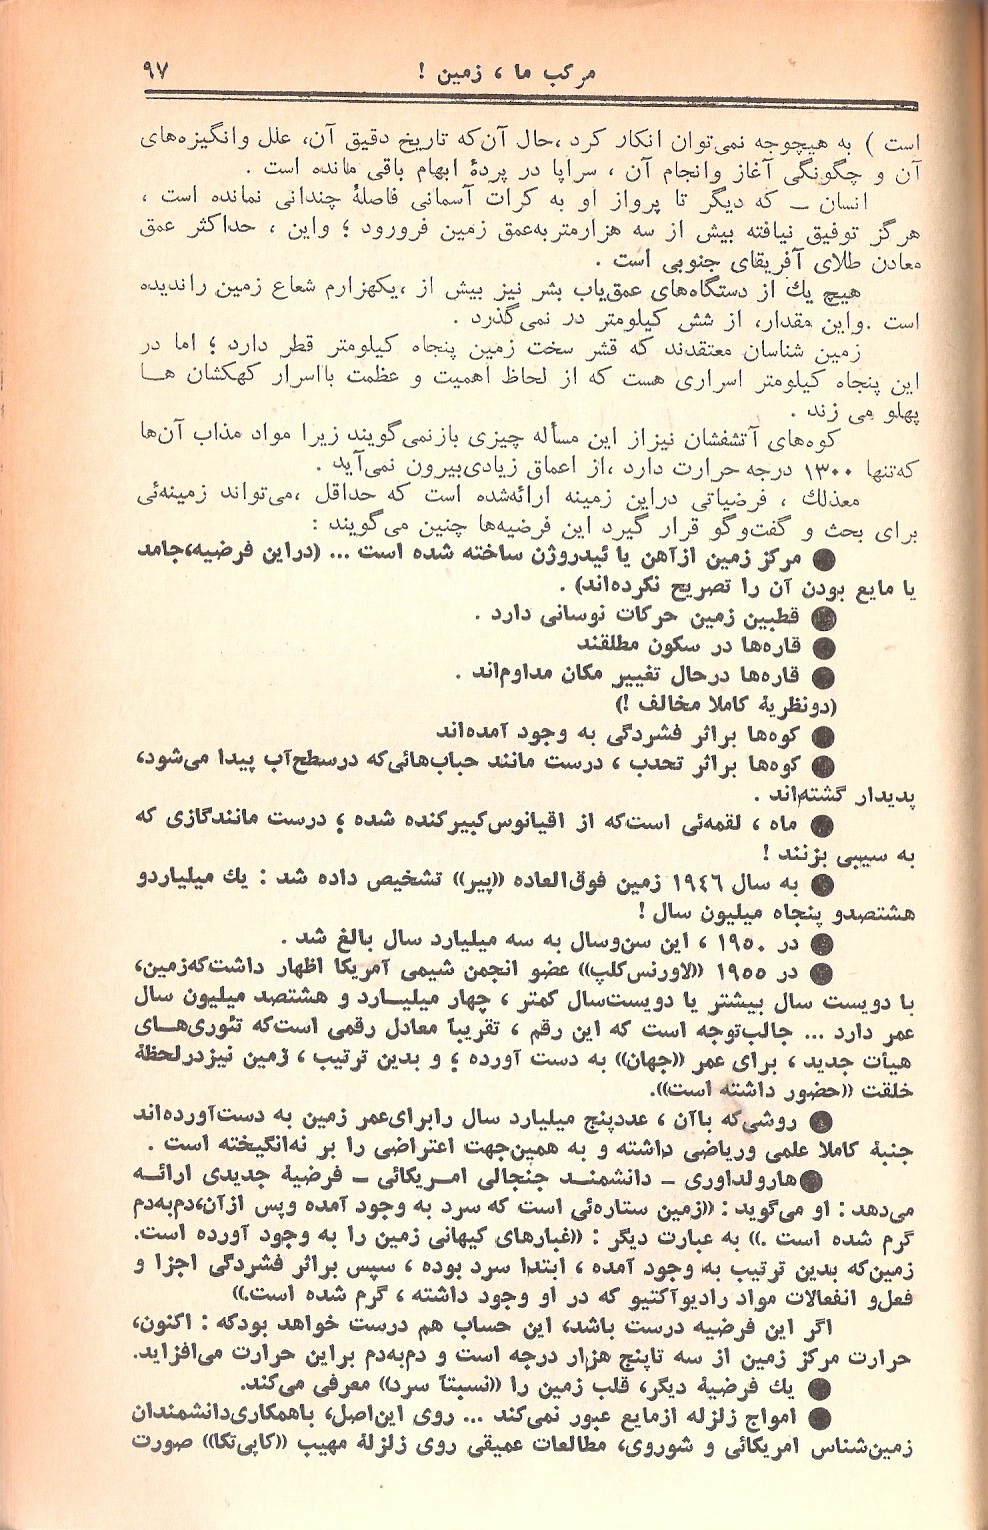 مرکب ما ، زمین ! ۹۷
است ) به هیچوجه نمی‌توان انکار کرد ،حال آن‌که تاریخ دقیق آن، علل وانگیزه‌های
آن و چگونگی آغاز وانجام آن ، سراپا در پردهٔ ابهام باقی مانده است .
انسان ــ که دیگر تا پرواز او به کرات آسمانی فاصلهٔ چندانی نمانده است ،
هرگز توفیق نیافته بیش از سه هزارمتربه‌عمق زمین فرورود ؛ واین ، حداکثر عمق
معادن طلای آفریقای جنوبی است .
هیچ یك از دستگاه‌های عمق‌یاب بشر نیز بیش از ،یکهزارم شعاع زمین راندیده
است .واین مقدار، از شش کیلومتر در نمی‌گذرد .
زمین شناسان معتقدند که قشر سخت زمین پنجاه کیلومتر قطر دارد ؛ اما در
این پنجاه کیلومتر اسراری هست که از لحاظ اهمیت و عظمت بااسرار کهکشان هــا
پهلو می زند .
کوه‌های آتشفشان نیزاز این مسأله چیزی بازنمی‌گویند زیرا مواد مذاب آن‌ها
که‌تنها ۱۳۰۰ درجه حرارت دارد ،از اعماق زیادی‌بیرون نمی‌آید .
معذلك ، فرضیاتی دراین زمینه ارائه‌شده است که حداقل ،می‌تواند زمینه‌ئی
برای بحث و گفت‌وگو قرار گیرد این فرضیه‌ها چنین می‌گویند :
● مرکز زمین ازآهن یا ئیدروژن ساخته شده است ... (دراین فرضیه،جامد
یا مایع بودن آن را تصریح نکرده‌اند) .
● قطبین زمین حرکات نوسانی دارد .
● قاره‌ها در سکون مطلقند
● قاره‌ها درحال تغییر مکان مداوم‌اند .
(دونظریهٔ کاملا مخالف !)
● کوه‌ها براثر فشردگی به وجود آمده‌اند
● کوه‌ها براثر تحدب ، درست مانند حباب‌هائی‌که درسطح‌آب پیدا می‌شود،
پدیدار گشته‌اند .
● ماه ، لقمه‌ئی است‌که از اقیانوس‌کبیرکنده شده ؛ درست مانندگازی که
به سیبی بزنند !
● به سال ۱۹٤٦ زمین فوق‌العاده ((پیر)) تشخیص داده شد : یك میلیاردو
هشتصدو پنجاه میلیون سال !
● در ۱۹۵۰ ، این سن‌وسال به سه میلیارد سال بالغ شد .
● در ۱۹۵۵ ((لاورنس‌کلپ)) عضو انجمن شیمی آمریکا اظهار داشت‌که‌زمین،
با دویست سال بیشتر یا دویست‌سال کمتر ، چهار میلیــارد و هشتصد میلیون سال
عمر دارد ... جالب‌توجه است که این رقم ، تقریباً معادل رقمی است‌که تئوری‌هــای
هیأت جدید ، برای عمر ((جهان)) به دست آورده ؛ و بدین ترتیب ، زمین نیزدرلحظهٔ
خلقت ((حضور داشته است)).
● روشی‌که باآن ، عددپنج میلیارد سال رابرای‌عمر زمین به دست‌آورده‌اند
جنبهٔ کاملا علمی وریاضی داشته و به همین‌جهت اعتراضی را بر نه‌انگیخته است .
● هارولداوری ــ دانشمنــد جنجالی امــریکائی ــ فرضیهٔ جدیدی ارائــه
می‌دهد : او می‌گوید : ((زمین ستاره‌ئی است که سرد به وجود آمده وپس ازآن،دم‌به‌دم
گرم شده است .)) به عبارت دیگر : ((غبارهای کیهانی زمین را به وجود آورده است.
زمین‌که بدین ترتیب به وجود آمده ، ابتدا سرد بوده ، سپس براثر فشردگی اجزا و
فعل‌و انفعالات مواد رادیوآکتیو که در او وجود داشته ، گرم شده است.))
اگر این فرضیه درست باشد، این حساب هم درست خواهد بودکه : اکنون،
حرارت مرکز زمین از سه تاپنج هزار درجه است و دم‌به‌دم براین حرارت می‌افزاید.
● یك فرضیهٔ دیگر، قلب زمین را ((نسبتاً سرد)) معرفی می‌کند.
● امواج زلزله ازمایع عبور نمی‌کند ... روی این‌اصل، باهمکاری‌دانشمندان
زمین‌شناس امریکائی و شوروی، مطالعات عمیقی روی زلزلهٔ مهیب ((کاپی‌تکا)) صورت